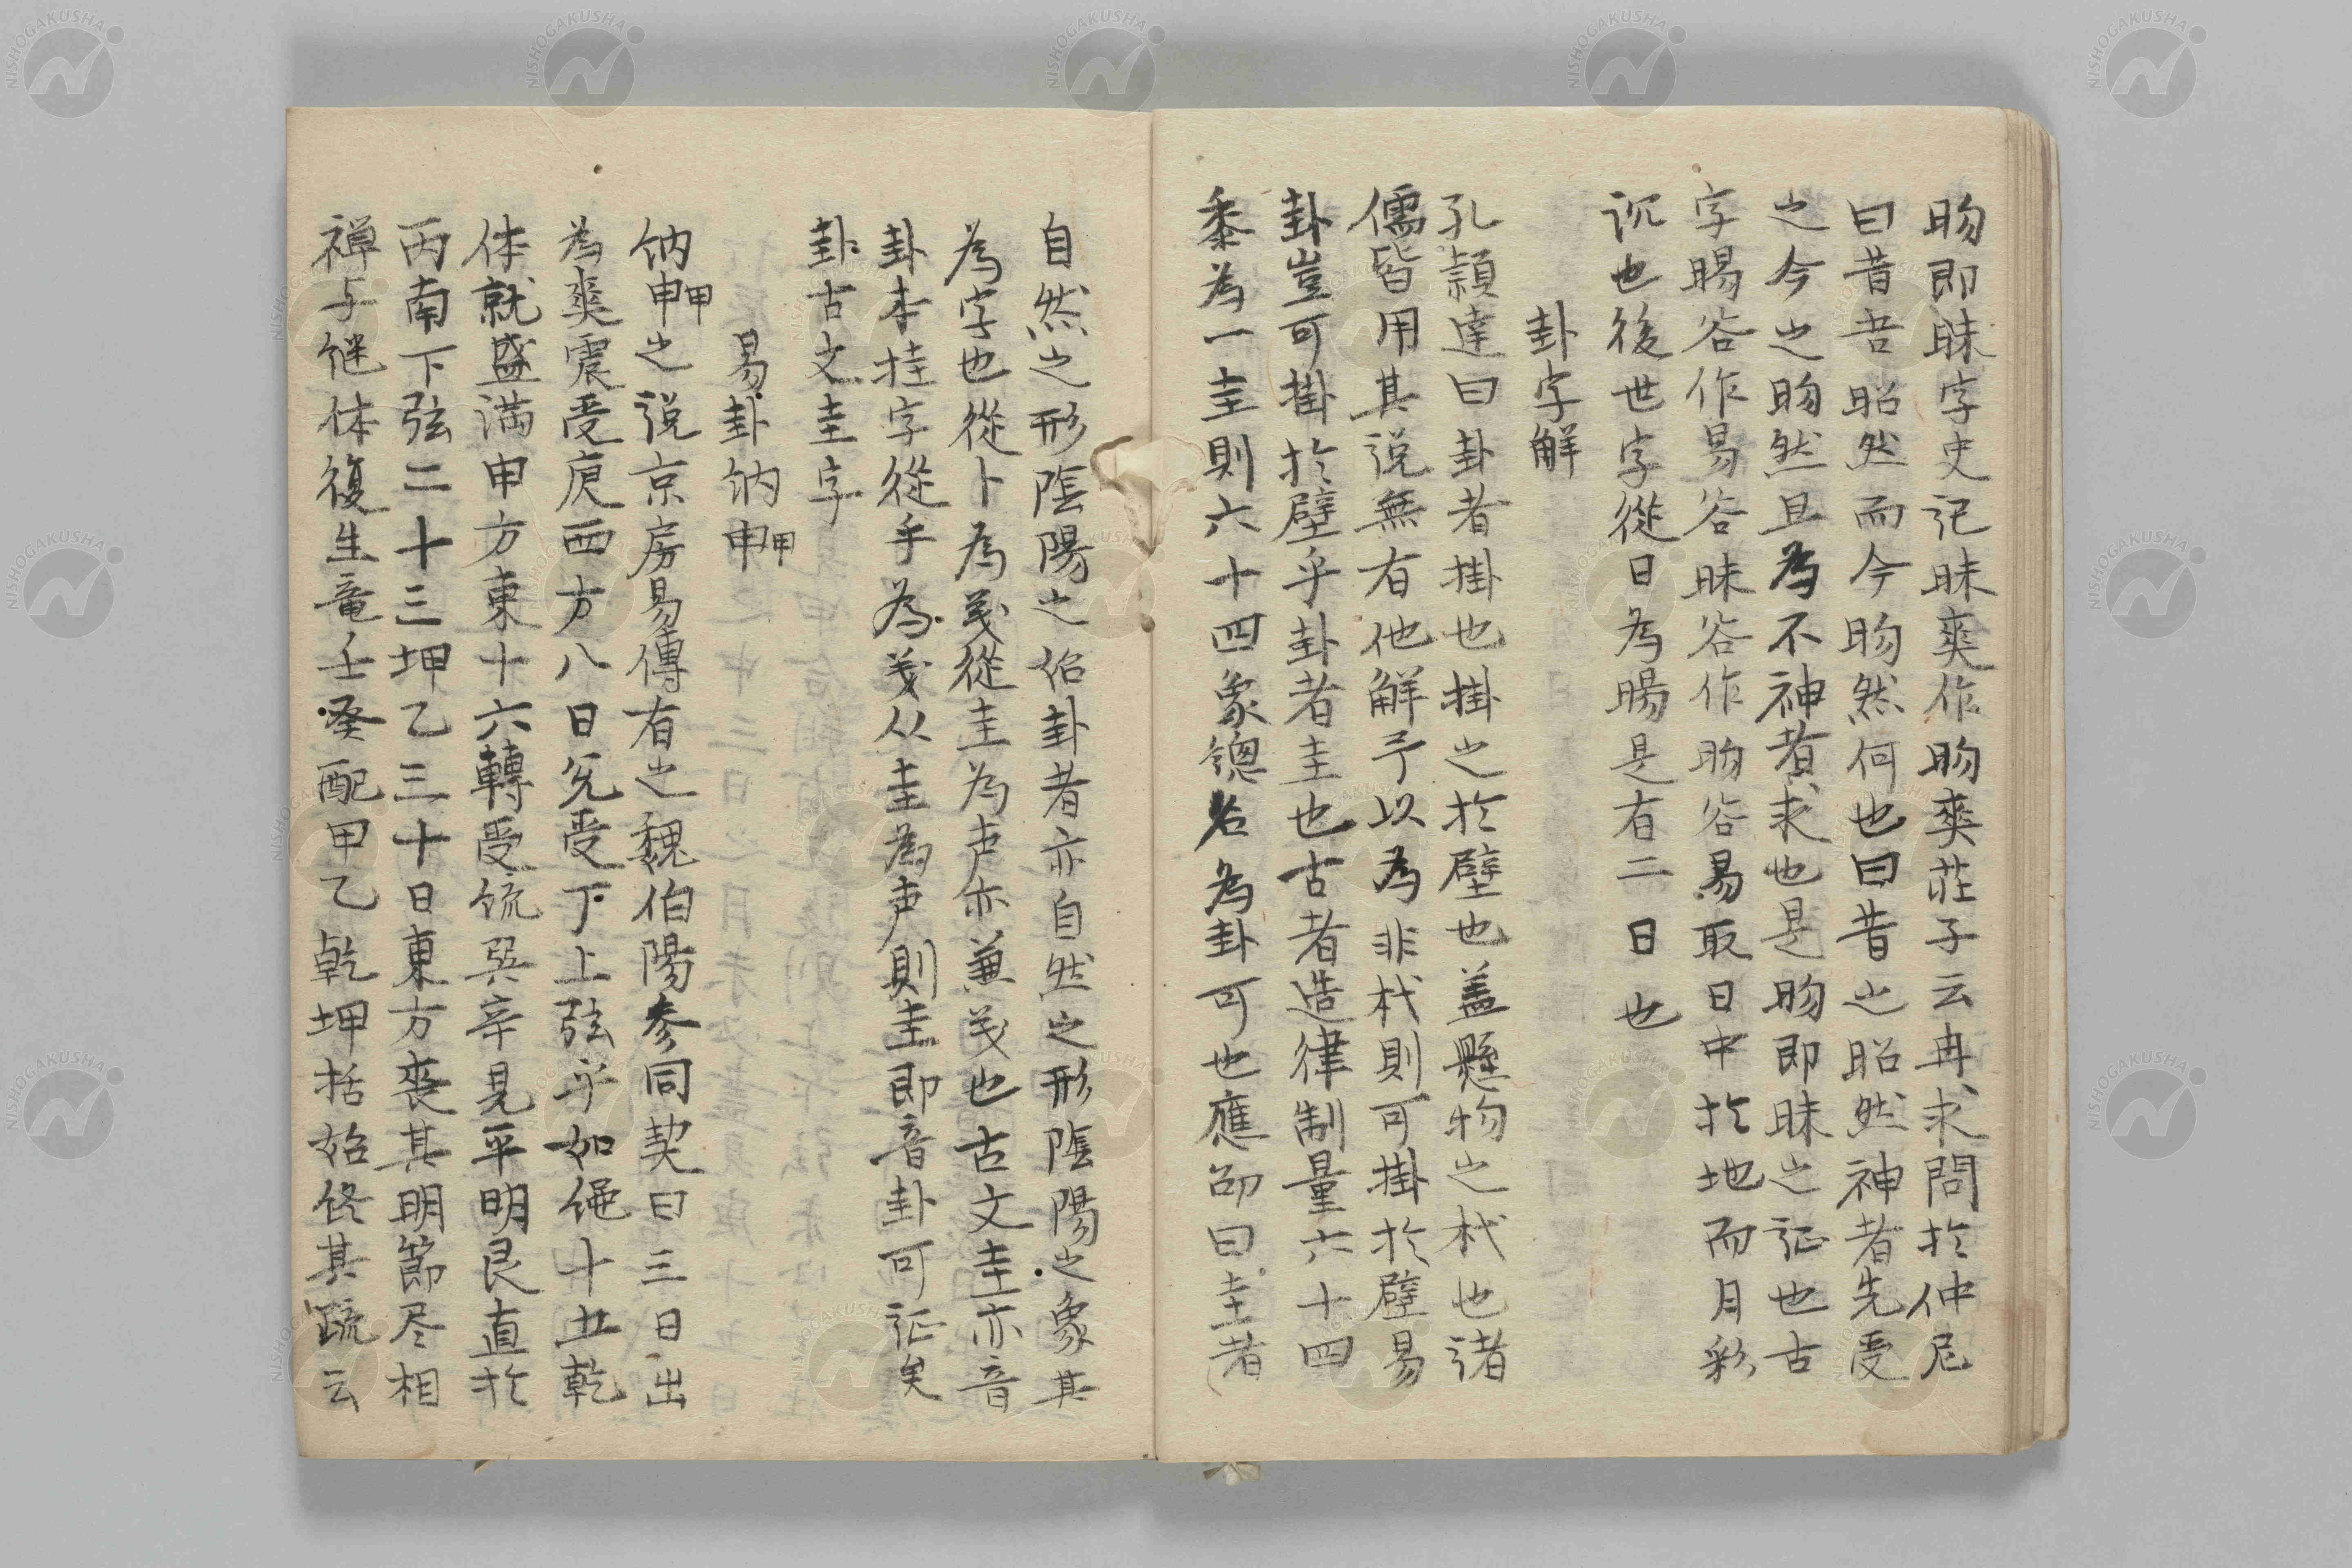 昒即昧字史記昧爽作昒爽荘子云冉求問於仲尼
曰昔吾昭然而今昒然何也曰昔之昭然神者先受
之今之昒然且為不神者求也是昒即昧之証也古
字暘谷作易谷昧谷作昒谷易取日中於地而月彩
沉也後世字從日為暘是有二日也
卦字解
孔頴達曰卦者掛也掛之於壁也盖懸物之杙也諸
儒皆用其説無有他解予以為非杙則可掛於壁易
卦豈可掛於壁乎卦者圭也古者造律制量六十四
黍為一圭則六十四象総名為卦可也應劭曰圭者
自然之形陰陽之始卦者亦自然之形陰陽之象其
為字也從卜為義從圭為声亦兼義也古文圭亦音
卦本挂字從手為義从圭為声則圭即音卦可証矣
卦古文圭字
易卦納申甲
納申甲之説京房易傳有之魏伯陽参同契曰三日出
為爽震受庚西方八日兊受丁上弦平如縄十五乾
体就盛満申方東十六轉受統巽辛見平明艮直於
丙南下弦二十三坤乙三十日東方喪其明節尽相
禅与継体復生竜壬癸配甲乙乾坤括始終其疏云
NISHOGAKUSHA